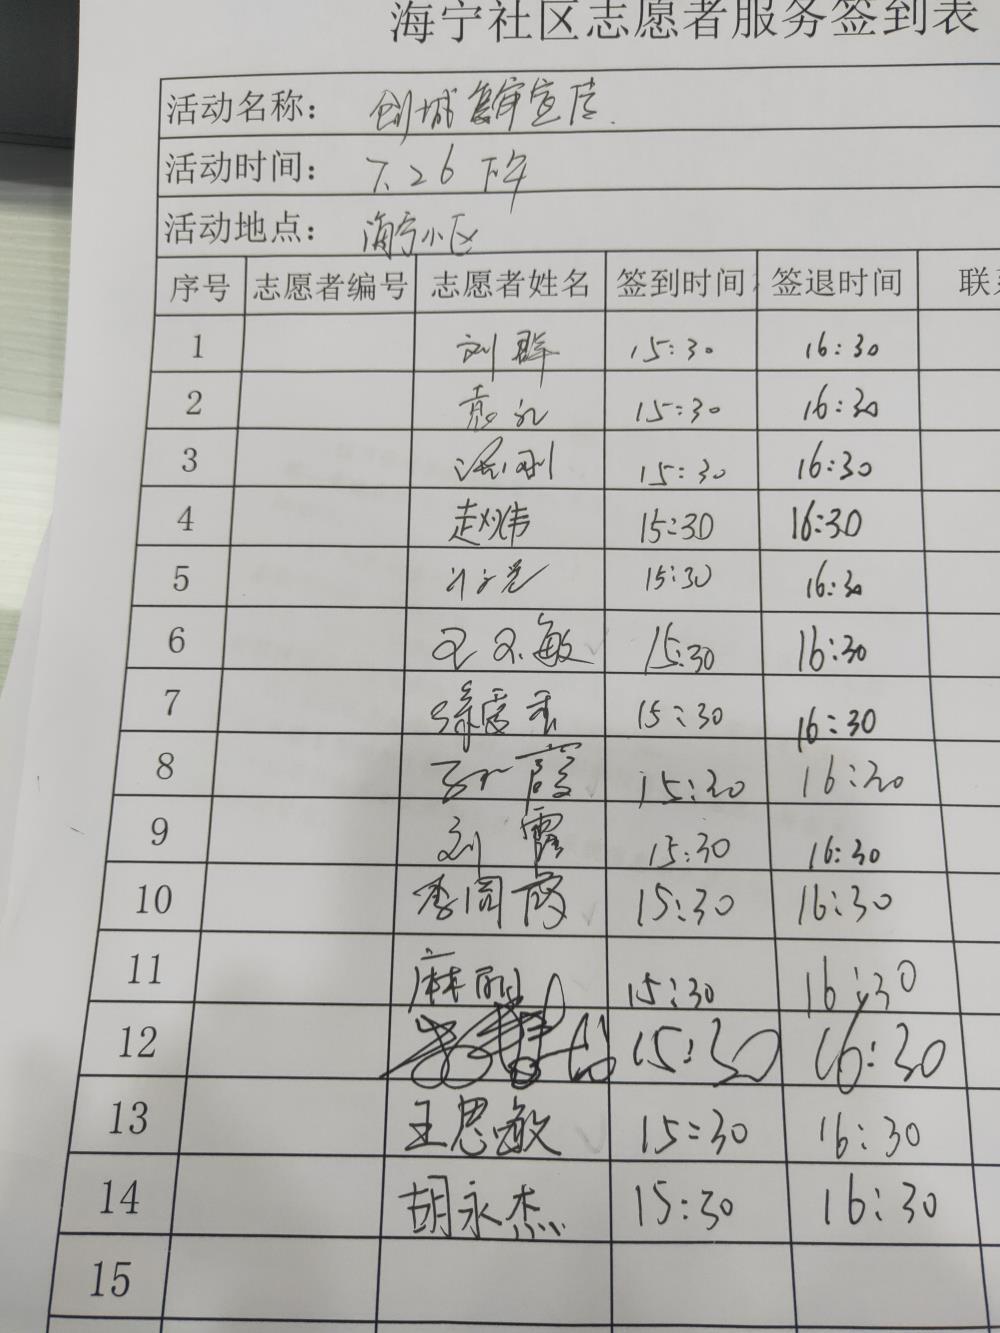 海宁社区志愿者服务签到表
活动名称： 创城复审宣传.
活动时间： 7.26下午
活动地点： 海宁小区
序号 志愿者编号 志愿者姓名 签到时间 签退时间 联系
1 刘群 15:30 16:30
2 袁礼 15:30 16:30
3 15:30 16:30
4 赵炜 15:30 16:30
5 15:30 16:30
6 敏 15:30 16:30
7 徐爱玉 15:30 16:30
8 霞 15:30 16:30
9 刘霞 15:30 16:30
10 李同霞 15:30 16:30
11 麻丽 15:30 16:30
12 15:30 16:30
13 王思敏 15:30 16:30
14 胡永杰 15:30 16:30
15